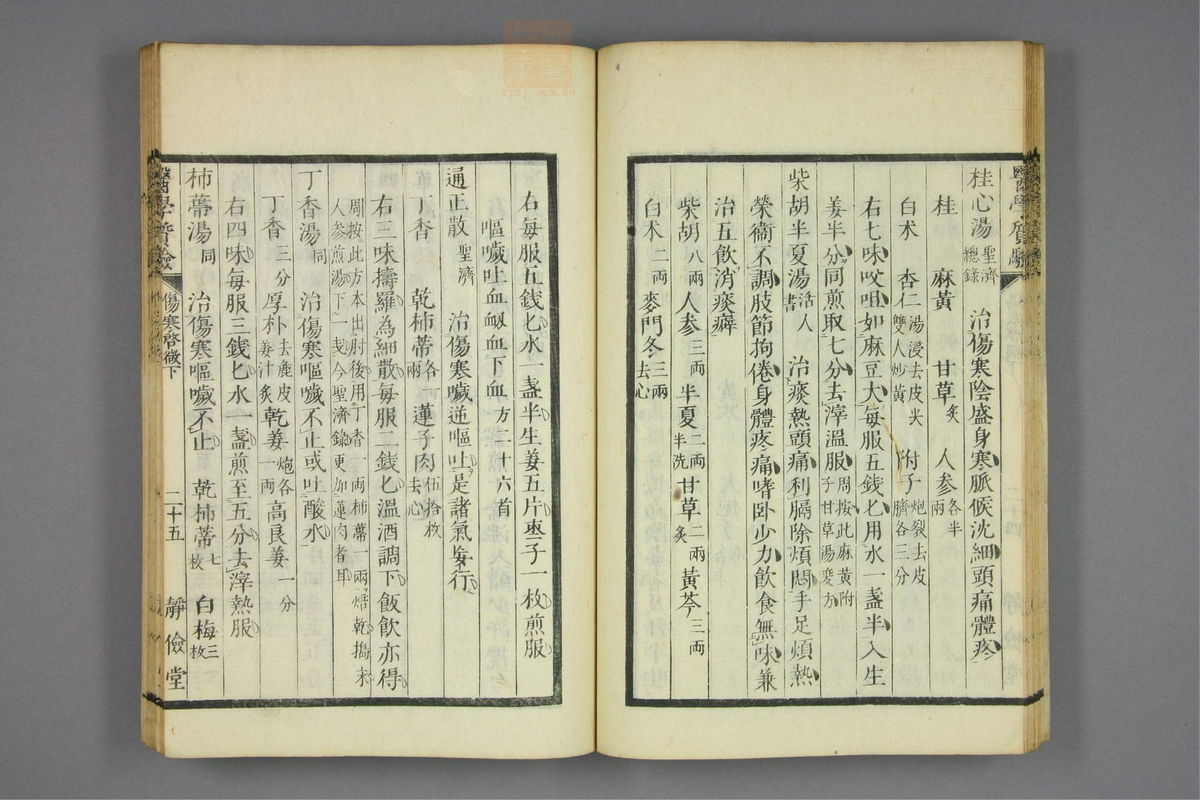 桂心湯聖濟總錄 治傷寒陰盛身寒脈候沈細頭痛體疼
桂 麻黃 甘草炙 人參各半兩
白朮 杏仁湯浸去皮尖雙人炒黃 附子炮裂去皮臍各三分
右七味㕮咀如麻豆大每服五錢匕用水一盞半入生
姜半分同煎取七分去滓溫服周按此麻黃附子甘草湯變方
柴胡半夏湯活人書 治痰熱頭痛利膈除煩悶手足煩熱
榮衞不調肢節拘倦身體疼痛嗜卧少力飲食無味兼
治五飲消痰癖
柴胡八兩 人參三兩 半夏二兩半洗 甘草二兩炙 黃芩三兩
白朮二兩 麥門冬三兩去心
醫學質驗
右每服五錢匕水一盞半生姜五片枣子一枚煎服
嘔噦吐血衂血下血方二十六首
通正散聖濟 治傷寒噦逆嘔吐是諸氣妄行
丁香 乾柿蒂各一兩 蓮子肉伍拾枚去心
右三味擣羅為細散每服二錢匕溫酒調下飯飲亦得
周按此方本出肘後用丁香一兩柿蒂一兩焙乾搗末
人參煎湯下一戔今聖濟錄更加蓮肉者耳
丁香湯同 治傷寒嘔噦不止或吐酸水
丁香三分 厚朴去麁皮姜汁炙 乾姜炮各一兩 高良姜一分
右四味每服三錢匕水一盞煎至五分去滓熱服
柿蒂湯同 治傷寒嘔噦不止 乾柿蒂七枚 白梅三枚
醫學質驗 傷寒啓微下 二十五 靜儉堂